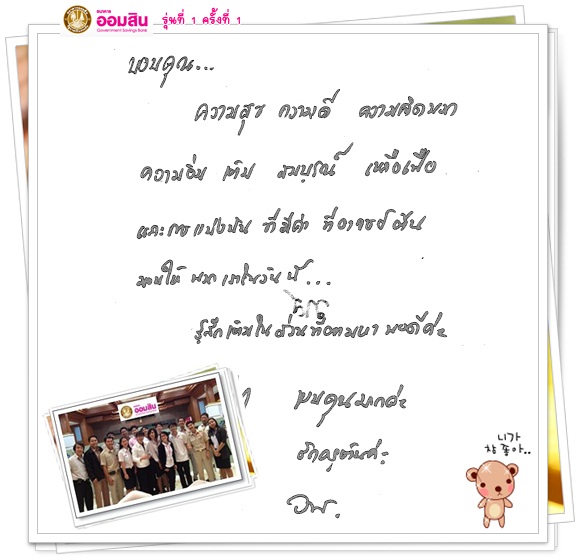 ธนาคาร
ออมสิน รุ่นที่ 1 ครั้งที่ 1
Government Savings Bank
ขอบคุณ...
ความสุข ความดี ความคิด
ความอิ่ม เติม สมบูรณ์ เหลือเฟือ
และการแบ่งปัน ที่มีค่า ที่อาจารย์
มอบให้ พวกเราในวันนี้...
รู้สึกเติมในส่วนที่ตามหา พอดีค่ะ
ขอบคุณมากค่ะ
รักครูค่ะ
ออมสิน
니가
참 좋아..